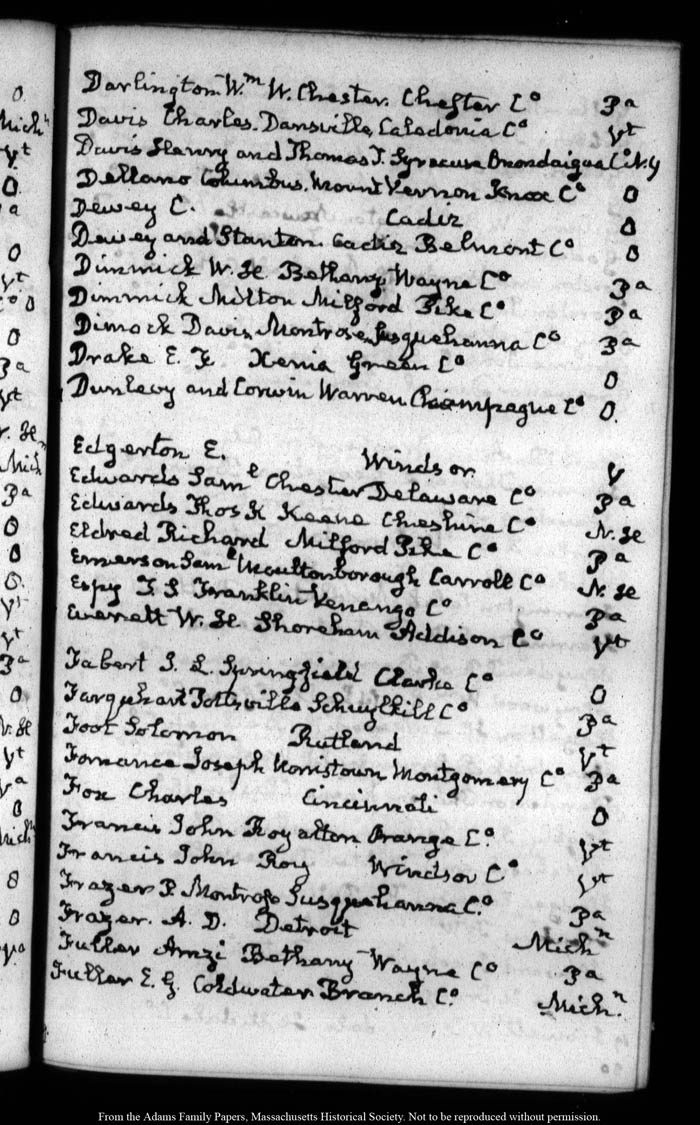 0
Mich.n
Vt
0
a
0
Vt
Co 0
0
Pa
Vt
N. H.
Mich
Pa
0
0
0
Vt
Vt
Pa
0
N. H
Vt
Va
0
Mich.n
0
0
Darlington Wm W. Chester. Chester Co Pa
Davis Charles. Dansville, Caledonia Co Vt
Davis Henry and Thomas T. Syracuse Onondaigua Co N.Y
Dellano Columbus. Mount Vernon Knox Co O
Dewey C. Cadiz O
Dewey and Stanton. Cadiz Belmont Co O
Dimmick W. H. Bethany Wayne Co Pa
Dimmick Milton Milford Pike Co Pa
Dimock Davis Montrose Susquehanna Co Pa
Drake E. F. Xenia Green Co O
Dunlevy and Corwin Warren Champague Co O.
Edgerton E. Windsor V
Edwards Saml Chester Delaware Co Pa
Edwards Thos K Keene Cheshire Co N. H
Eldred Richard Milford Pike Co Pa
Emerson Saml Moultonborough Carroll Co N. H
Espy T. S Franklin Venango Co Pa
Everett W. H Shoreham Addison Co Vt
Fabert S. L. Springfield Clarke Co O
Farquhart Pottsville Schuylkill Co Pa
Foot Solomon Rutland Vt
Fornance Joseph Norristown Montgomery Co Pa
Fox Charles Cincinnati O
Francis John Royalton Orange C.o Vt
Francis John Roy Windsor Co Vt
Frazer P. Montrose Susquehanna C.o Pa
Frazer. A. D. Detroit Mich.n
Fuller Amzi Bethany Wayne Co Pa
Fuller E. G. Coldwater Branch C.o Mich.n
From the Adams Family Papers, Massachusetts Historical Society. Not to be reproduced without permission.